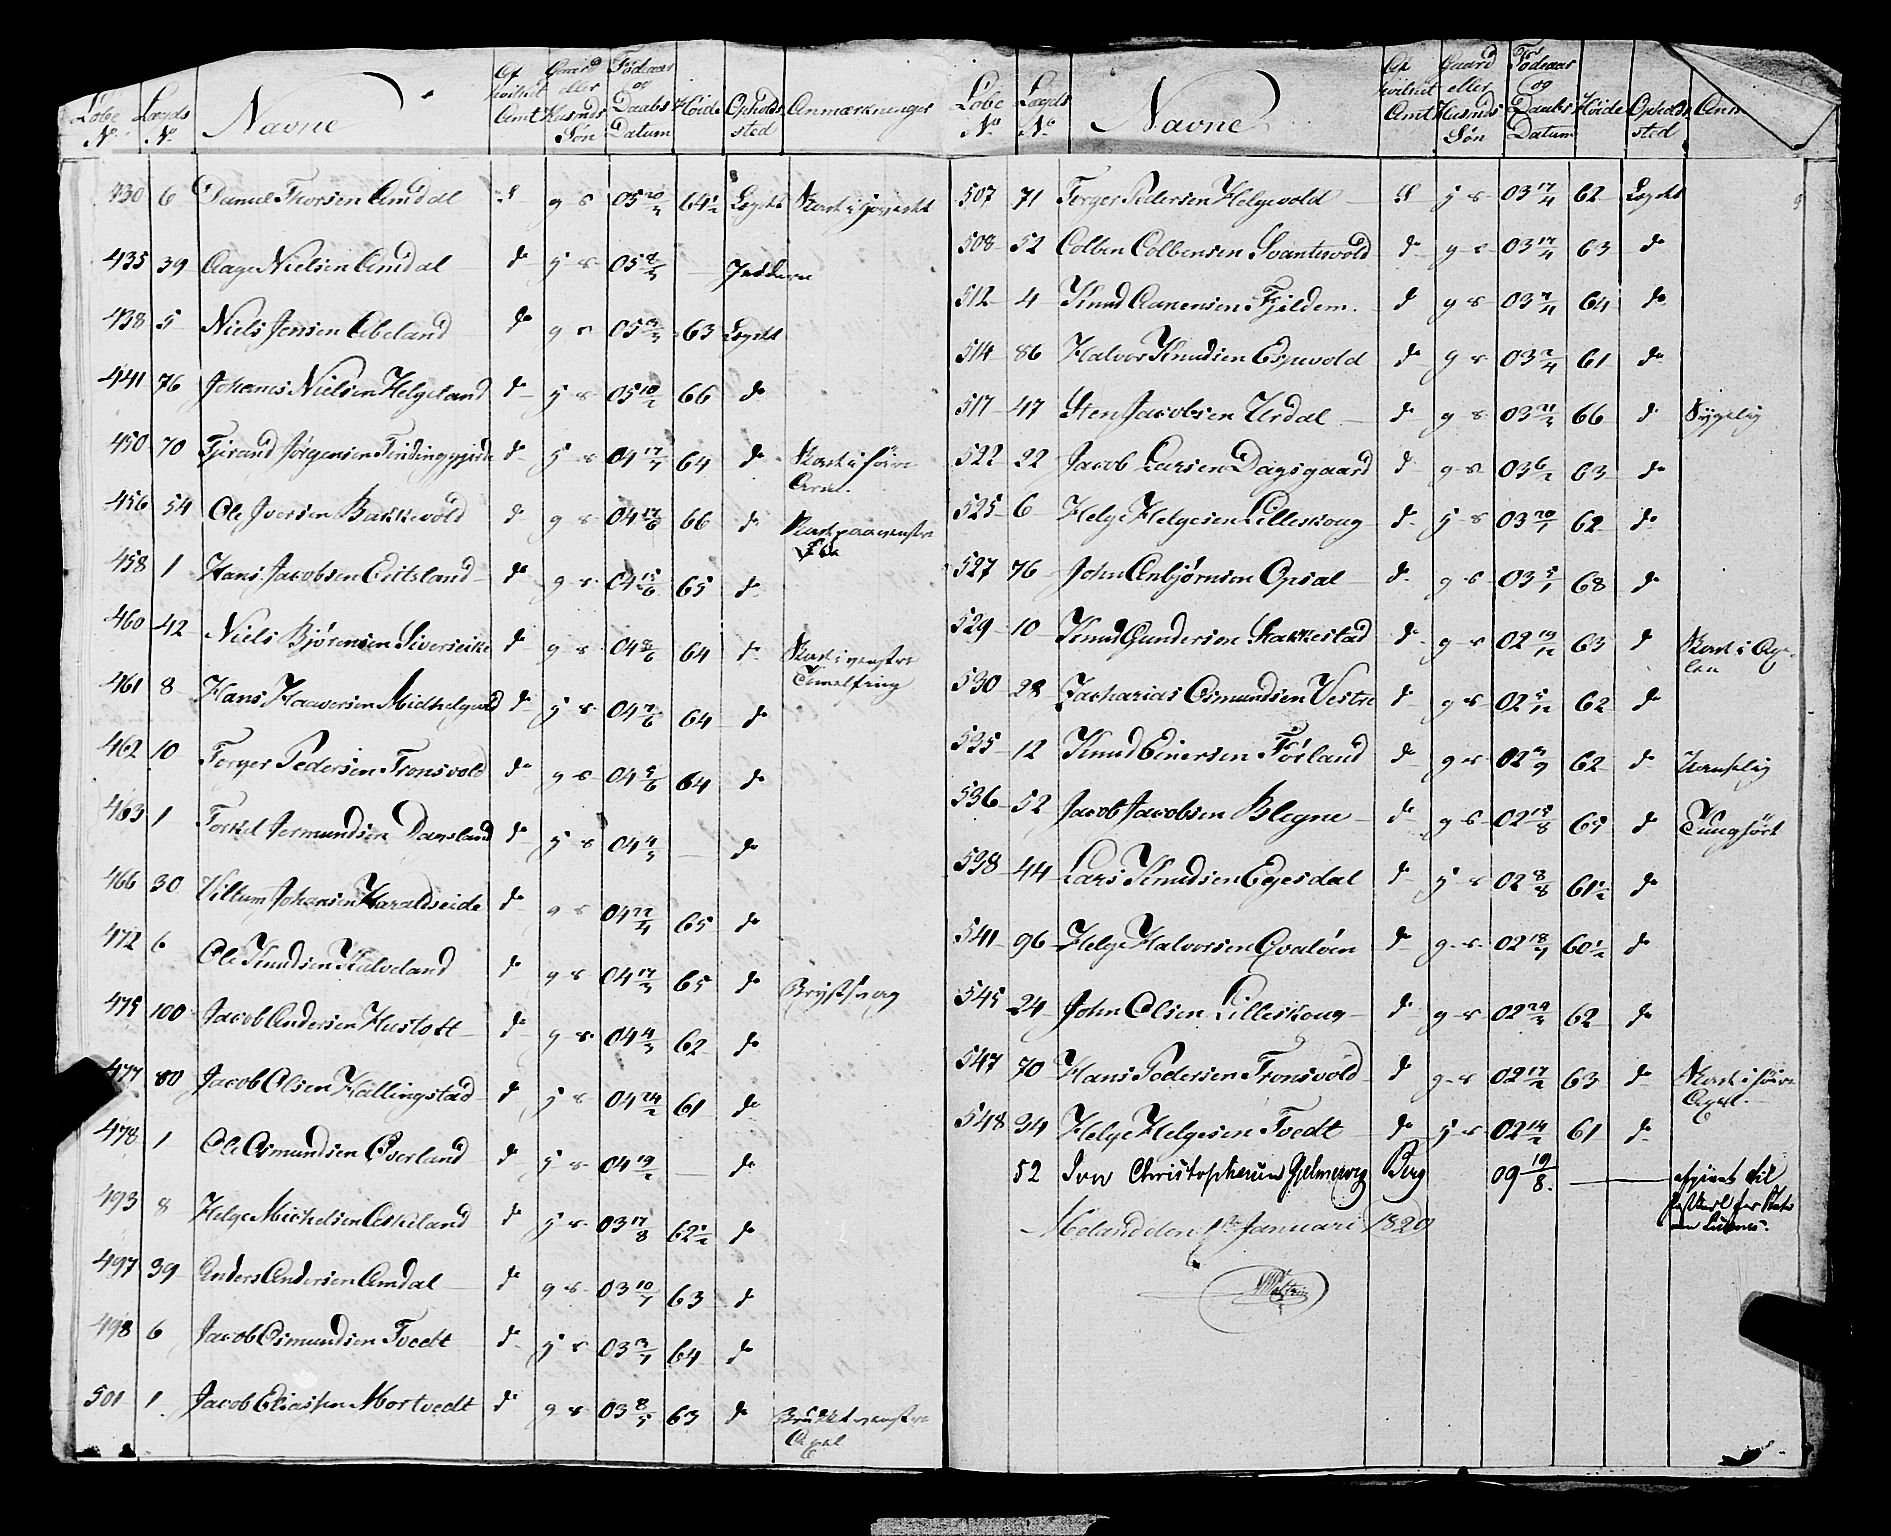 Løbe No. Lægds No. Navne Af hvilket Amt Gaard eller Husmds Søn Fødeaar og Daabs Datum Høide Opholds sted Anmærkninger
430 6 Daniel Thorsen Amdal g s 05 20/4 64½ Lægdet
435 39 Aage Nielsen Amdal do j s 05 Jedderen
438 5 Niels Jensen Abeland do g s 05 63 Lægdet
441 76 Johanes Nielsen Helgeland do j s 05 10/2 66 do
450 70 Tjerand Jørgensen do j s 04 17/7 64 do Skad i høire Arm.
456 54 Ole Iversen Bakkevold do g s 04 17/6 66 do Skad paa venstre
458 1 Hans Jacobsen Eritsland do g s 04 15/6 65 do
460 42 Niels Bjørensen Sivereike do g s 04 8/6 64 do Skad i venstre Timelfring
461 8 Hans Haaversen Midhelgvold do j s 04 7/6 64 do
462 10 Torger Pedersen Tronsvold do g s 04 5/6 64 do
463 1 Torkel Jermundsen Dausland do j s 04 4/5 — do
466 30 Villum Johansen Haraldseide do g s 04 22/4 65 do
472 6 Ole Knudsen Kalveland do g s 04 17/3 65 do Brystsvag
475 100 Jacob Andersen Hustoft do g s 04 4/3 62 do
477 80 Jacob Olsen Hallingstad do j s 04 24/2 61 do
478 1 Ole Osmundsen Øverland do j s 04 19/2 — do
493 8 Helge Michelsen Eskeland do j s 03 17/8 62½ do
497 39 Anders Andersen Amdal do g s 03 10/7 63 do
498 6 Jacob Osmundsen Tvedt do j s 03 3/7 64 do
501 1 Jacob Eliassen Mortvedt do g s 03 8/5 63 do Brukket venstre Axel
Løbe No. Lægds No. Navne Af hvilket Amt Gaard eller Husmds Søn Fødeaar og Daabs Datum Høide Opholds sted Anm
507 71 Torger Pedersen Helgevold j s 03 17/4 62 Lægdet
508 52 Colben Colbensen Svantesvold do g s 03 17/4 63 do
512 4 Knud Aanensen Fjeldem. do g s 03 7/4 64 do
514 86 Halvor Knudsen Espevold do g s 03 2/4 61 do
517 47 Sten Jacobsen Urdal do g s 03 21/3 66 do Sygelig
522 22 Jacob Larsen Dagsgaard do g s 03 6/2 63 do
525 6 Helge Helgesen Lilleskoug do j s 03 20/1 62 do
527 76 John Anbjørnsen Opsal do g s 03 5/1 68 do
529 10 Knud Gundersen Stakkestad do g s 02 19/12 63 do Skad i Axelen
530 28 Zacharias Osmundsen Vestre do g s 02 5/12 62 do
535 12 Knud Einersen Førland do g s 02 3/9 62 do Vanselig
536 52 Jacob Jacobsen Blegne do g s 02 15/8 65 do Tunghørt
538 44 Lars Knudsen Egesdal do j s 02 8/8 61½ do
541 96 Helge Halvorsen Qvaløen do g s 02 18/7 60½ do
545 24 John Olsen Lilleskoug do g s 02 24/3 62 do
547 70 Hans Pedersen Tronsvold do g s 02 17/2 63 do Skad i høire Axel.
548 34 Helge Helgesen Tvedt do j s 02 14/2 61 do
52 Iver Christophersen Berg 09 19/8. — afgivet til
Meland den 1ste Januari 1829